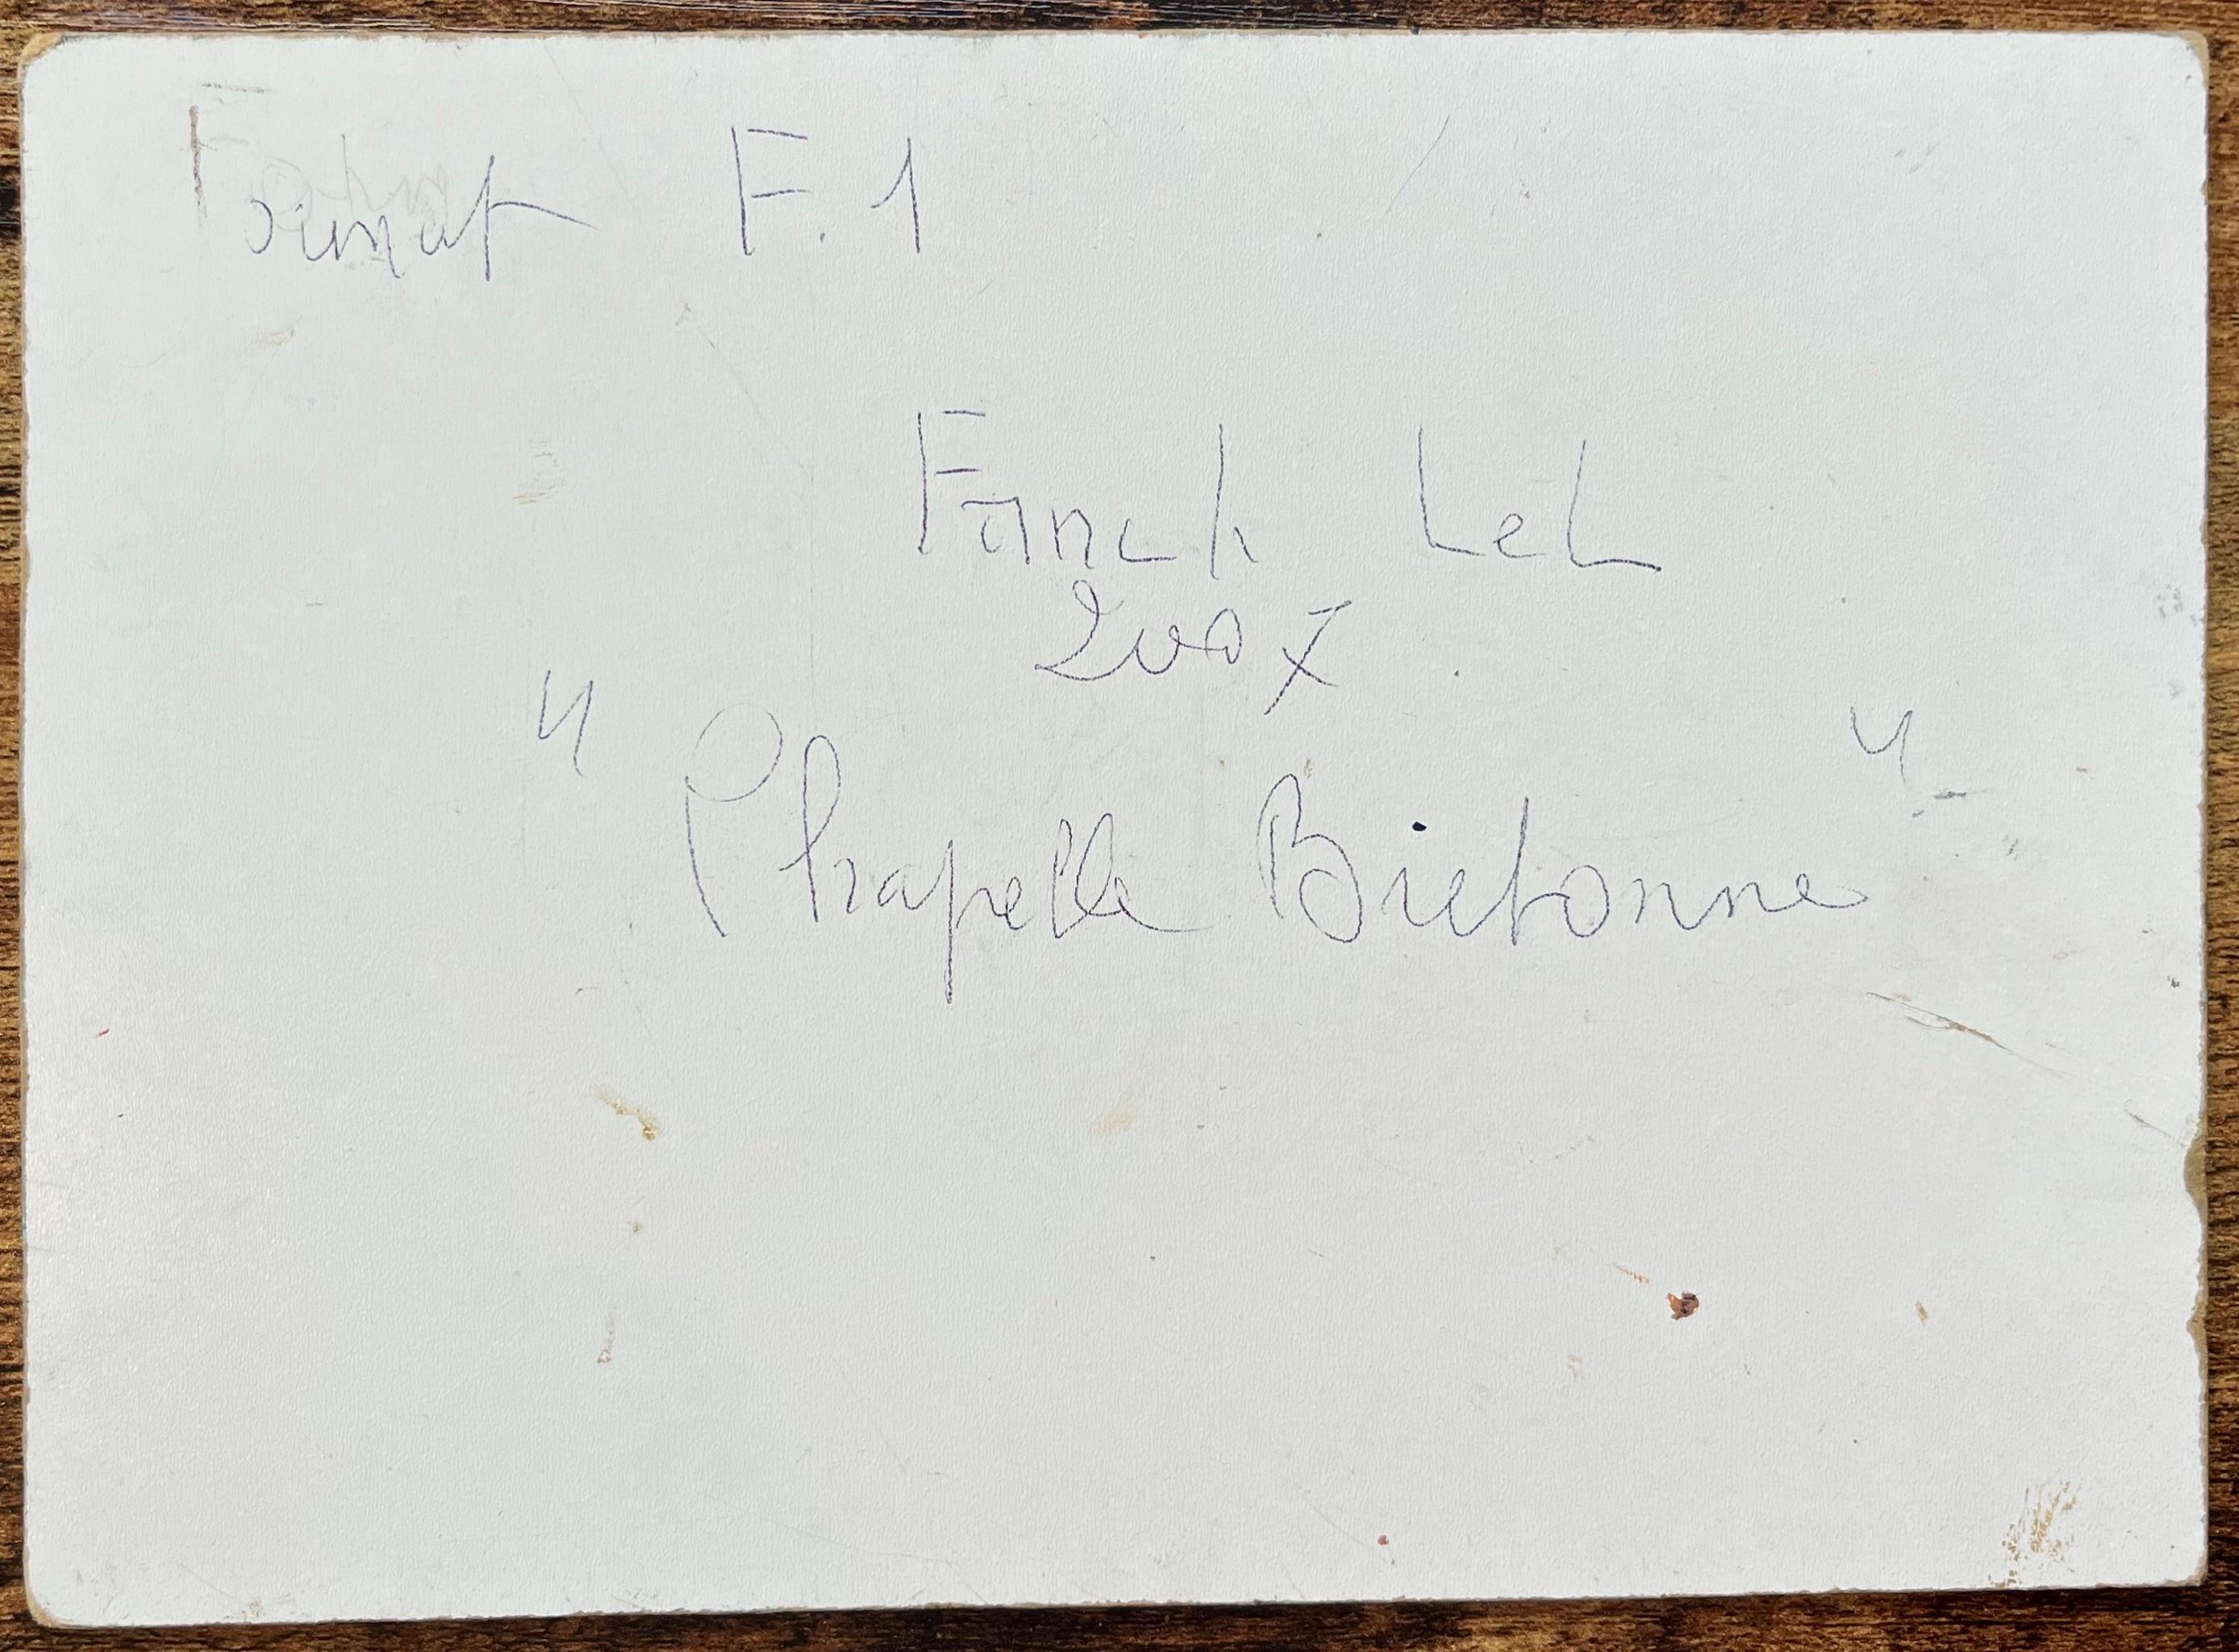 Format F.1
Fanch Lel
2007
"Chapelle Bretonne"